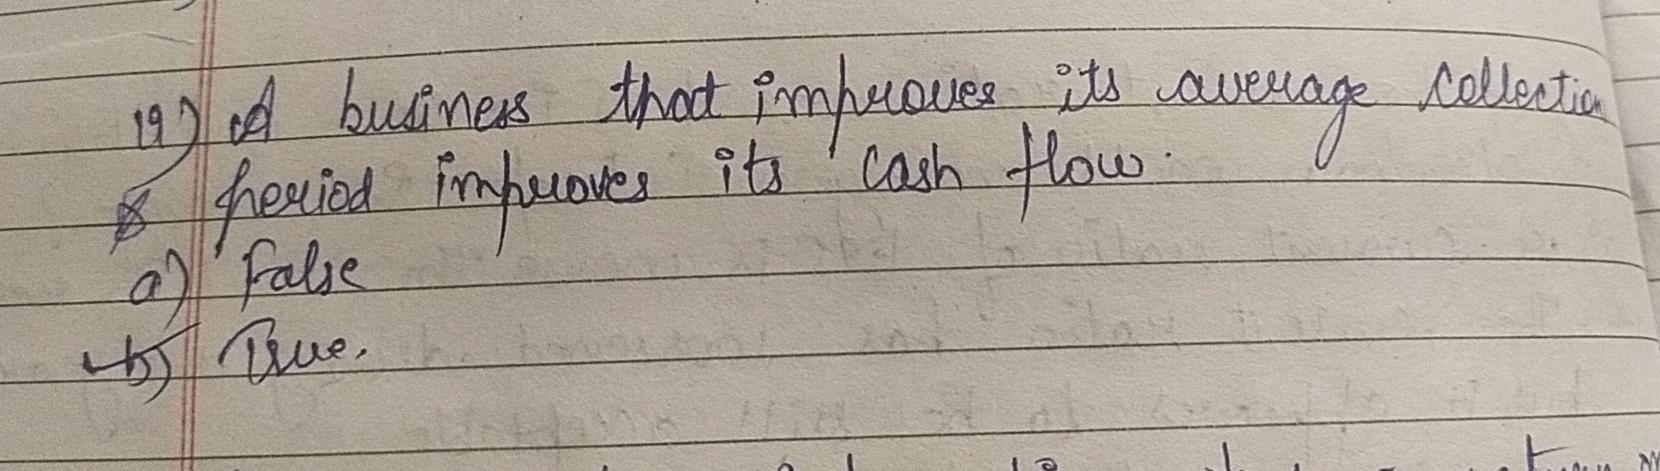 19) A business that improves its average collection
period improves its cash flow.
a) False
b) True.